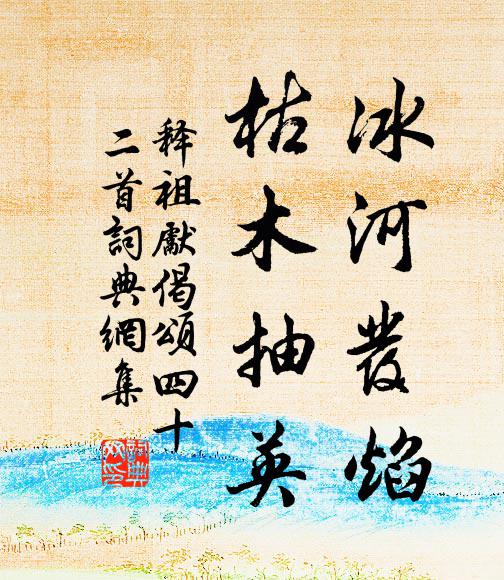 冰河發焰
枯木抽英
释祖獻偈頌四十
二首詞典網集